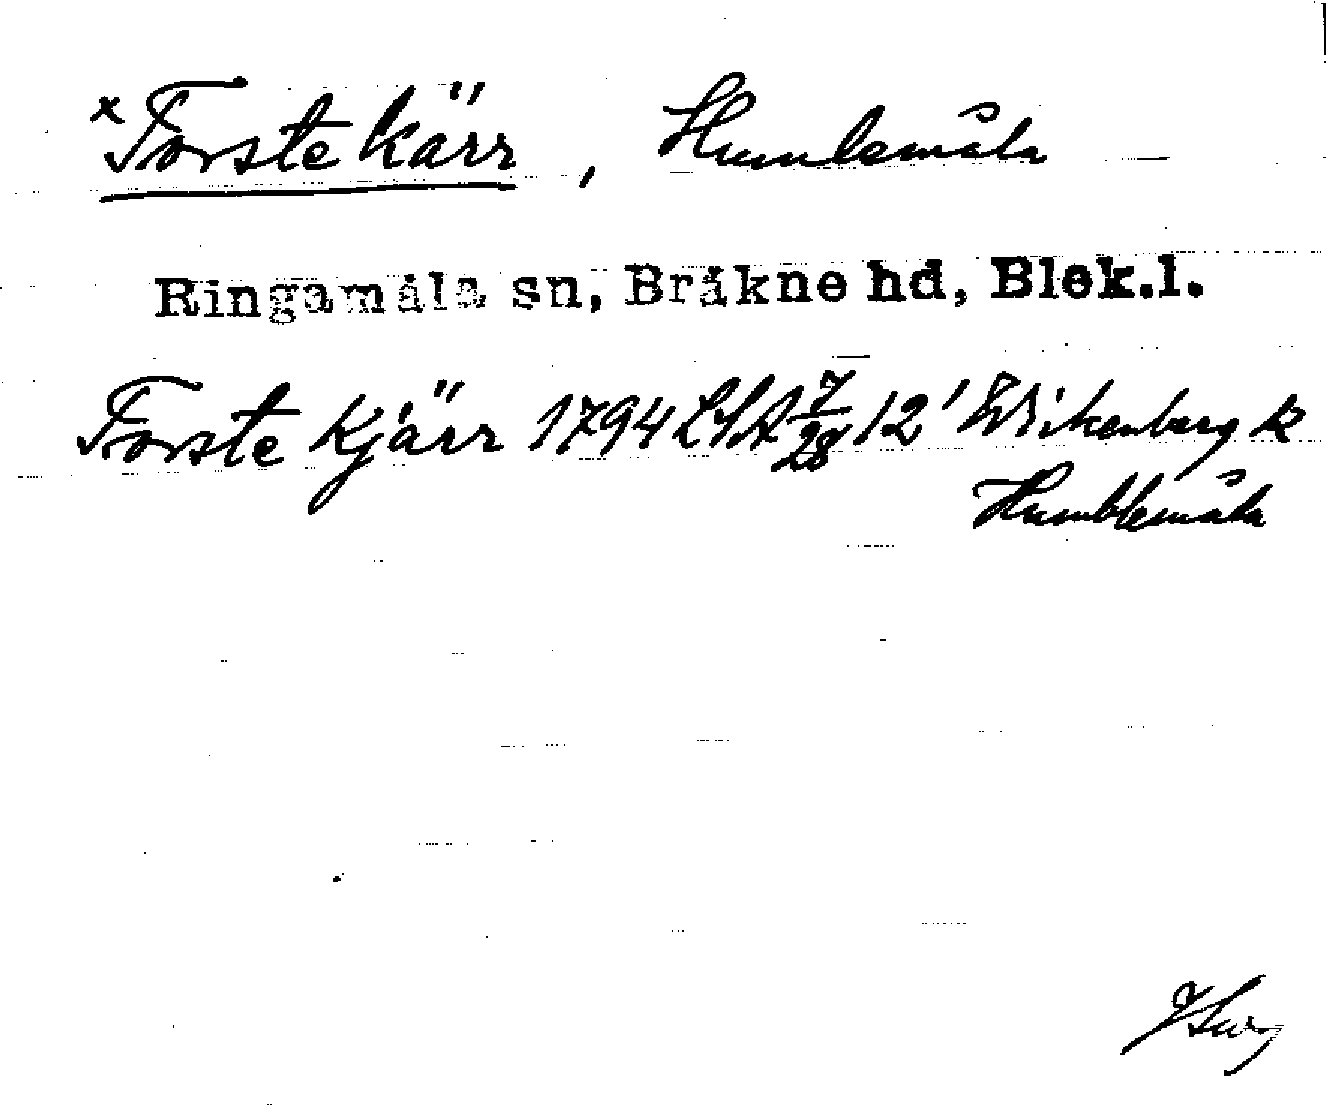 ×Torstekärr, Humlemåla
Ringamåla sn, Bräkne hd, Blek.l.
Torste kjärr 1794 LSA 7/28 12' Wikenberg k
Humblemåla